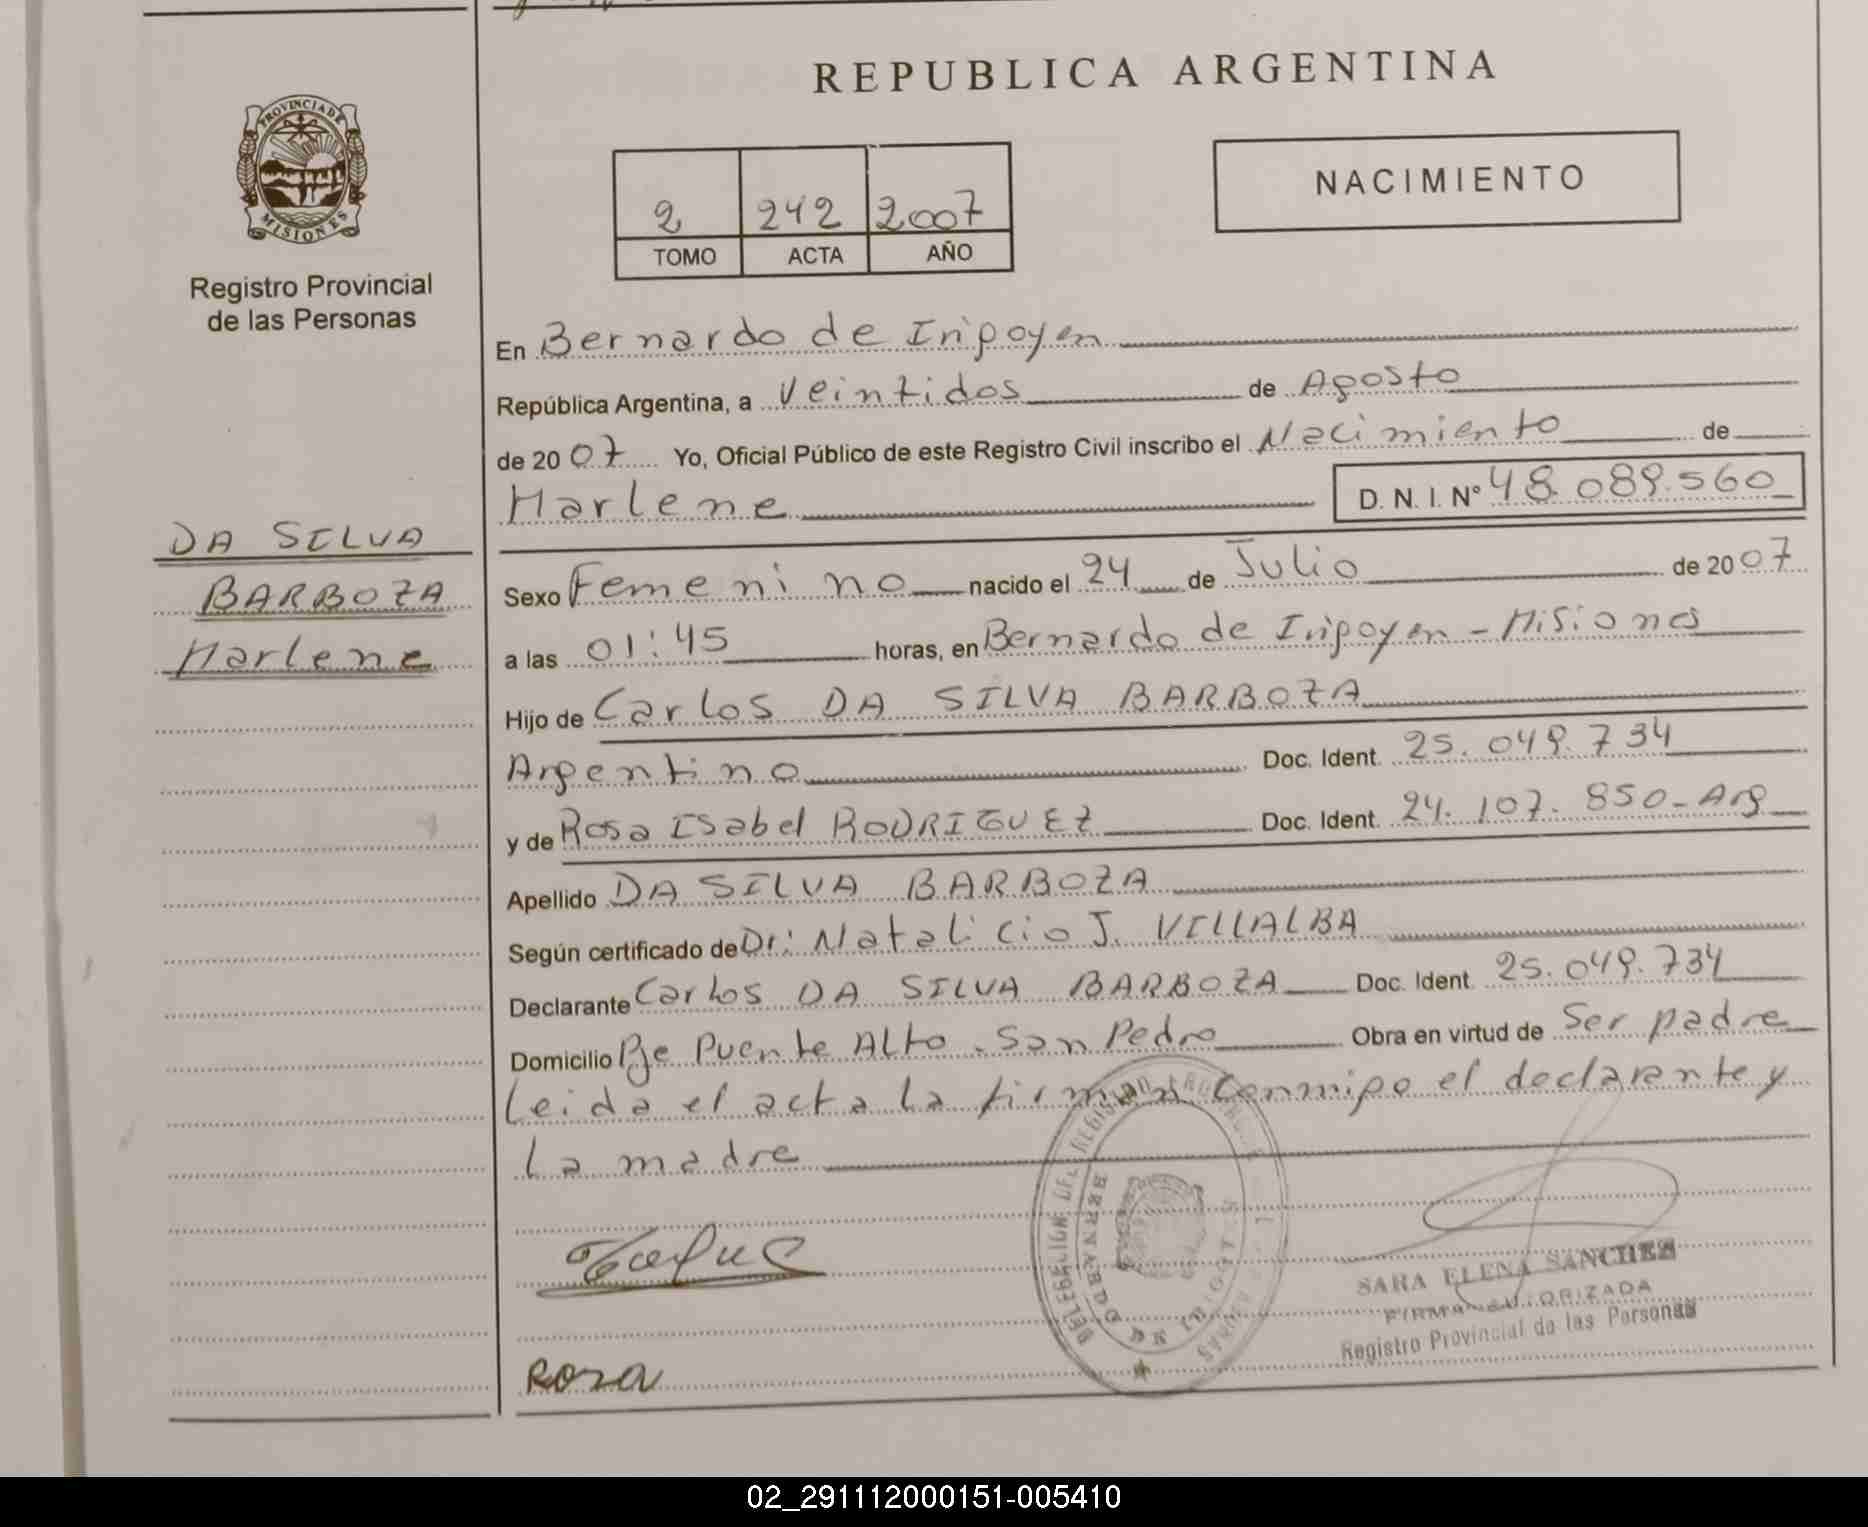 REPUBLICA ARGENTINA
PROVINCIA DE
MISIONES
Registro Provincial
de las Personas
NACIMIENTO
2 242 2007
TOMO ACTA AÑO
DA SILVA
BARBOZA
Marlene
En Bernardo de Irigoyen
República Argentina, a Veintidos de Agosto
de 2007 Yo, Oficial Público de este Registro Civil inscribo el Nacimiento de
Marlene D. N. I. Nº 48.089.560
Sexo Femenino nacido el 24 de Julio de 2007
a las 01:45 horas, en Bernardo de Irigoyen - Misiones
Hijo de Carlos DA SILVA BARBOZA
Argentino Doc. Ident. 25.049.734
y de Rosa Isabel RODRIGUEZ Doc. Ident. 24.107.850-Arg
Apellido DA SILVA BARBOZA
Según certificado de Dr: Natalicio J. VILLALBA
Declarante Carlos DA SILVA BARBOZA Doc. Ident. 25.049.734
Domicilio Pje Puente Alto - San Pedro Obra en virtud de Ser padre
Leida el acta la firman conmigo el declarante y
La madre
SARA ELENA SANCHEZ
FIRMA AUTORIZADA
Registro Provincial de las Personas
Rosa
02_291112000151-005410